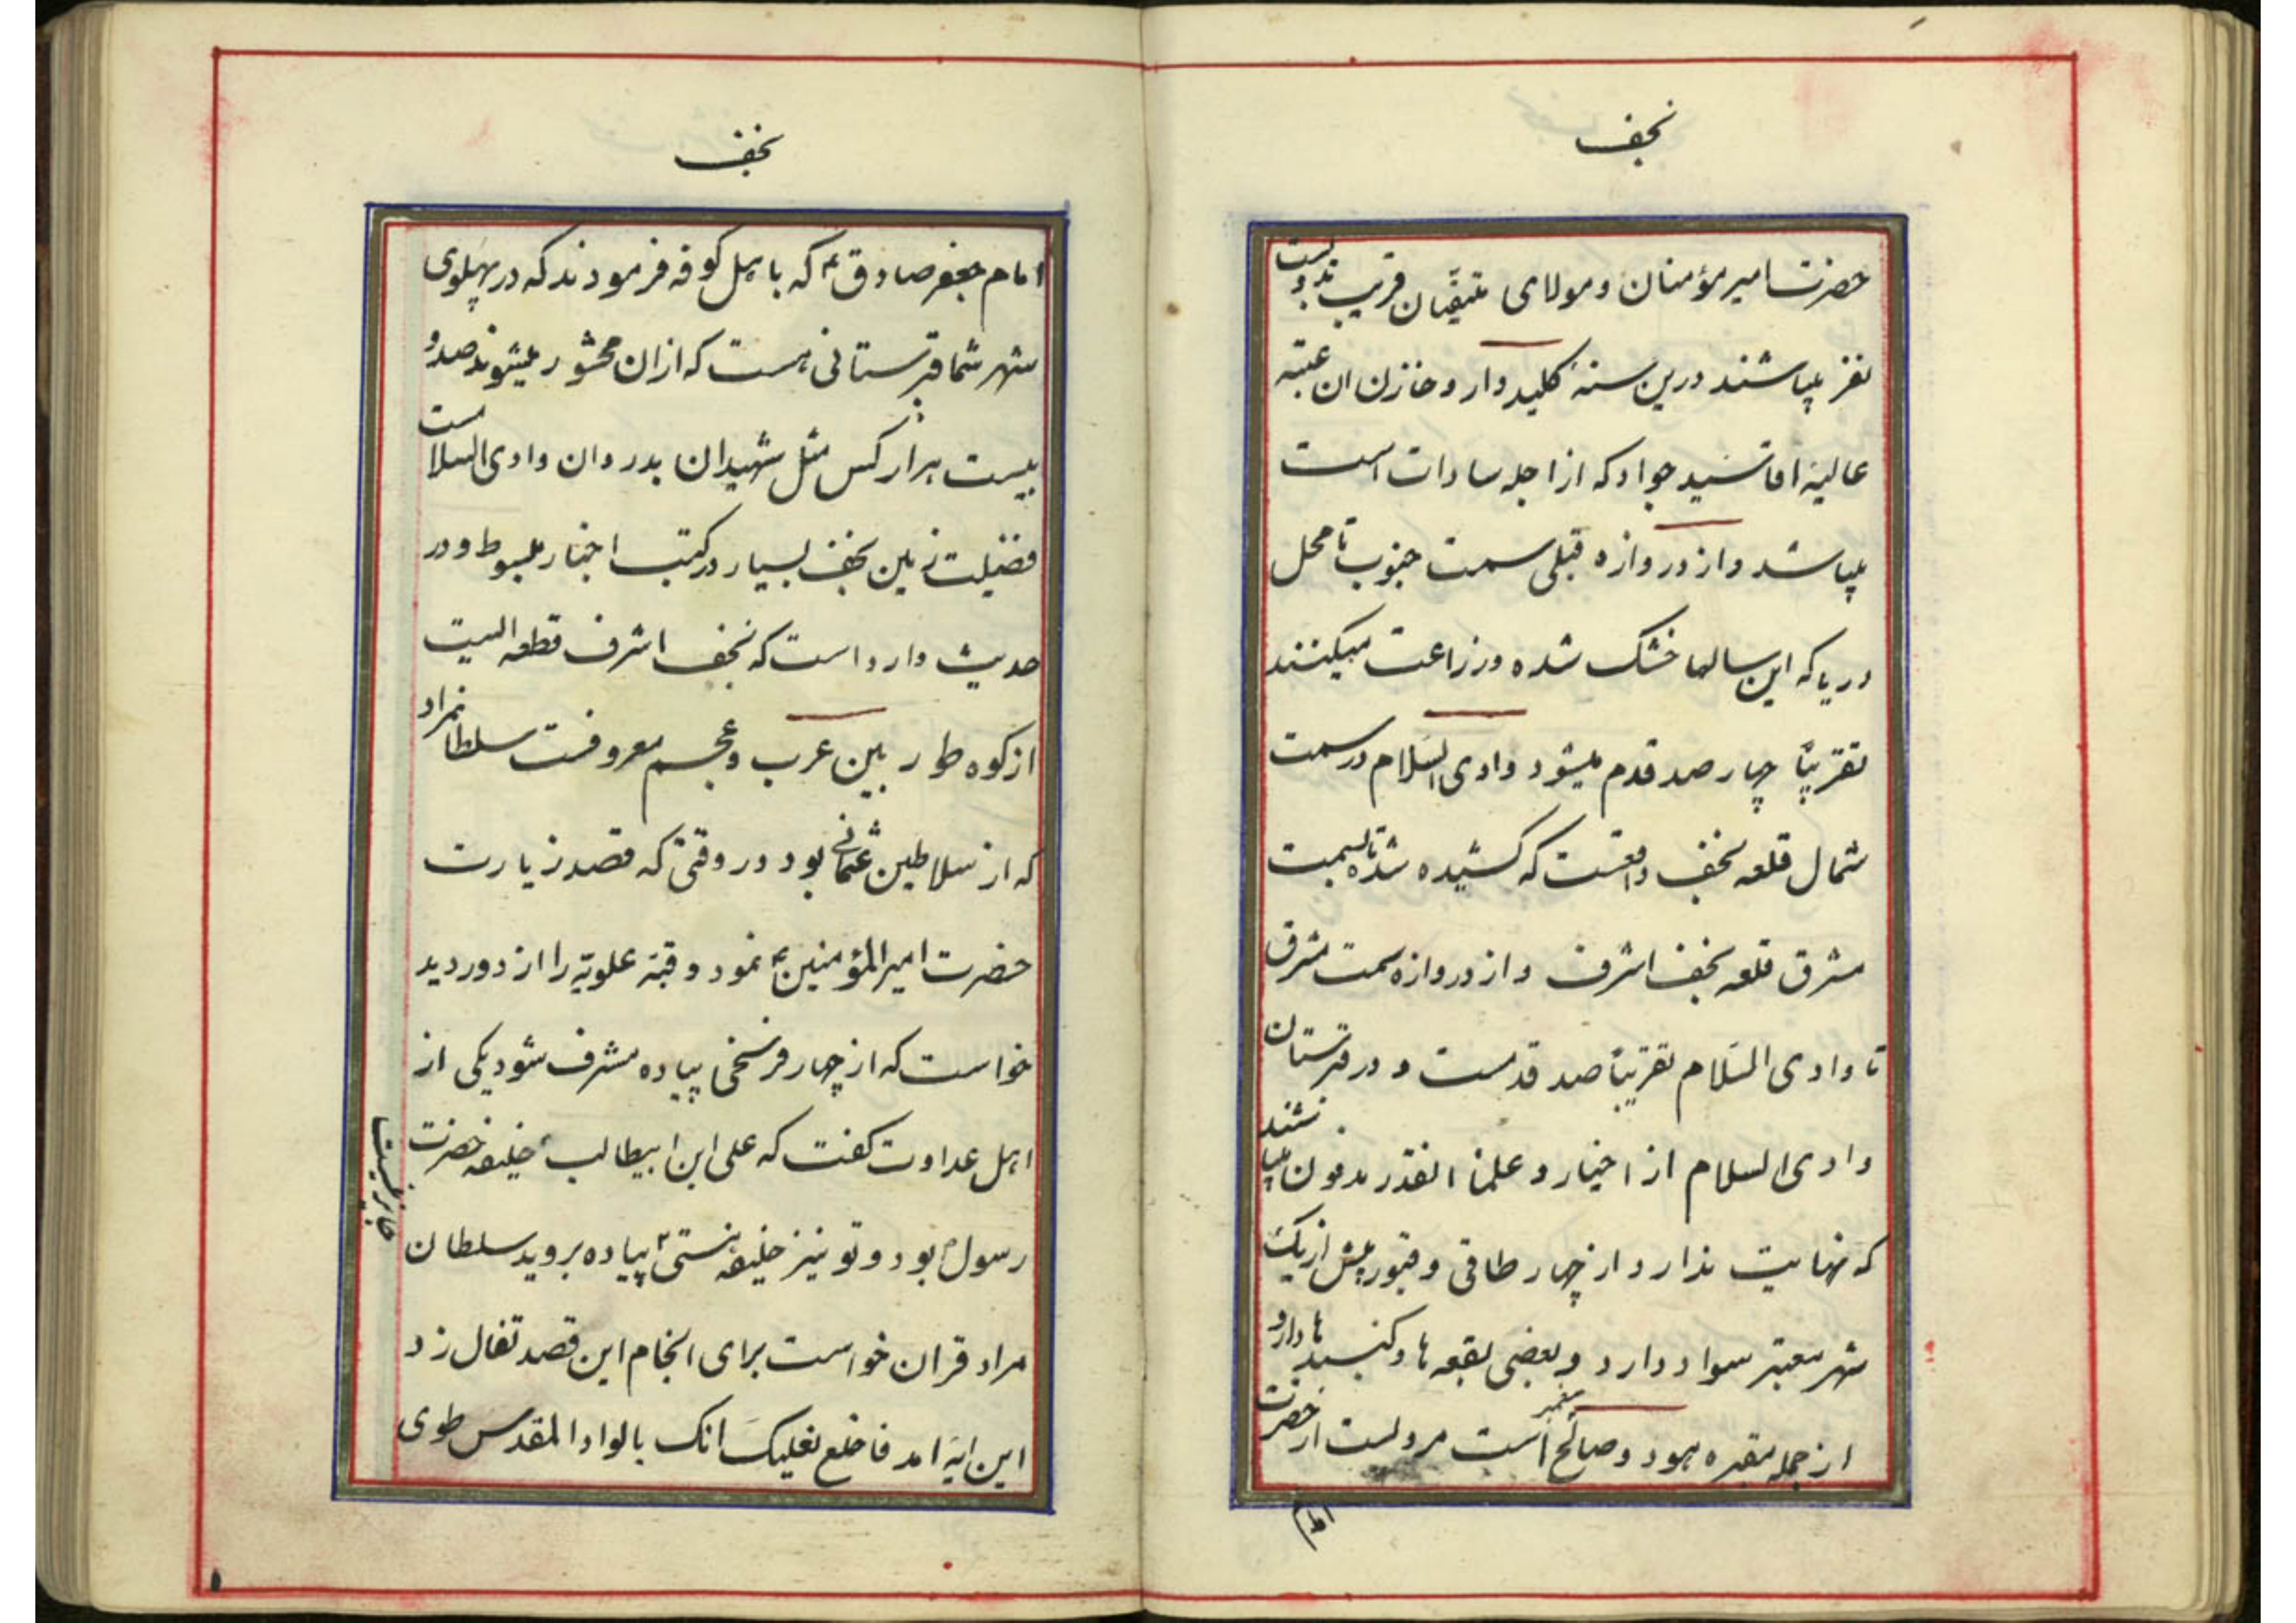 نجف
حضرت امیر مؤمنان و مولای متیقیان قریب بدویست
نفر میباشند درین سنهٔ کلیددار و خازن ان عتبه
عالیه اقا سید جواد که از اجله سادات است
میباشد و از دروازه قبلی سمت جنوب تا محل
دریا که این سالها خشک شده و زراعت میکنند
تقریبًا چهار صد قدم میشود وادی السلام در سمت
شمال قلعه نجف واقعست که کشیده شده تا بسمت
مشرق قلعه نجف اشرف و از دروازه سمت مشرق
تا وادی السّلام تقریبًا صد قدمست و در قبرستان
وادی السلام از اخیار و علما انقدر مدفون میباشند
که نهایت ندارد از چهار طاقی و قبور بیش از یک
شهر معتبر سواد دارد و بعضی بقعه ها و کنبد ها دارد
از جمله مقبره هود و صالح پیغمبر است مرویست از حضرت
امام
نجف
امام جعفر صادق ع که باهل کوفه فرمودند که در پهلوی
شهر شما قبرستانی هست که از ان محشور میشوند صد و
بیست هزار کس مثل شهیدان بدر و ان وادی السلامست
فضیلت زمین نجف بسیار در کتب اخبار مبسوط و در
حدیث وارد است که نجف اشرف قطعه ایست
از کوه طور بین عرب و عجم معروفست سلطانمراد
که از سلاطین عثمانی بود در وقتی که قصد زیارت
حضرت امیرالمؤمنین ع نمود و قبهٔ علویّه را از دور دید
خواست که از چهار فرسخی پیاده مشرف شود یکی از
اهل عداوت کفت که علی ابن ابیطالب ع خلیفه حضرت
رسول ص بود و تو نیز خلیفه هستی پیاده بروید سلطان
جایز نیست
مراد قران خواست برای انجام این قصد تفال زد
این ایه امد فاخلع نعلیک انک بالواد المقدس طوی